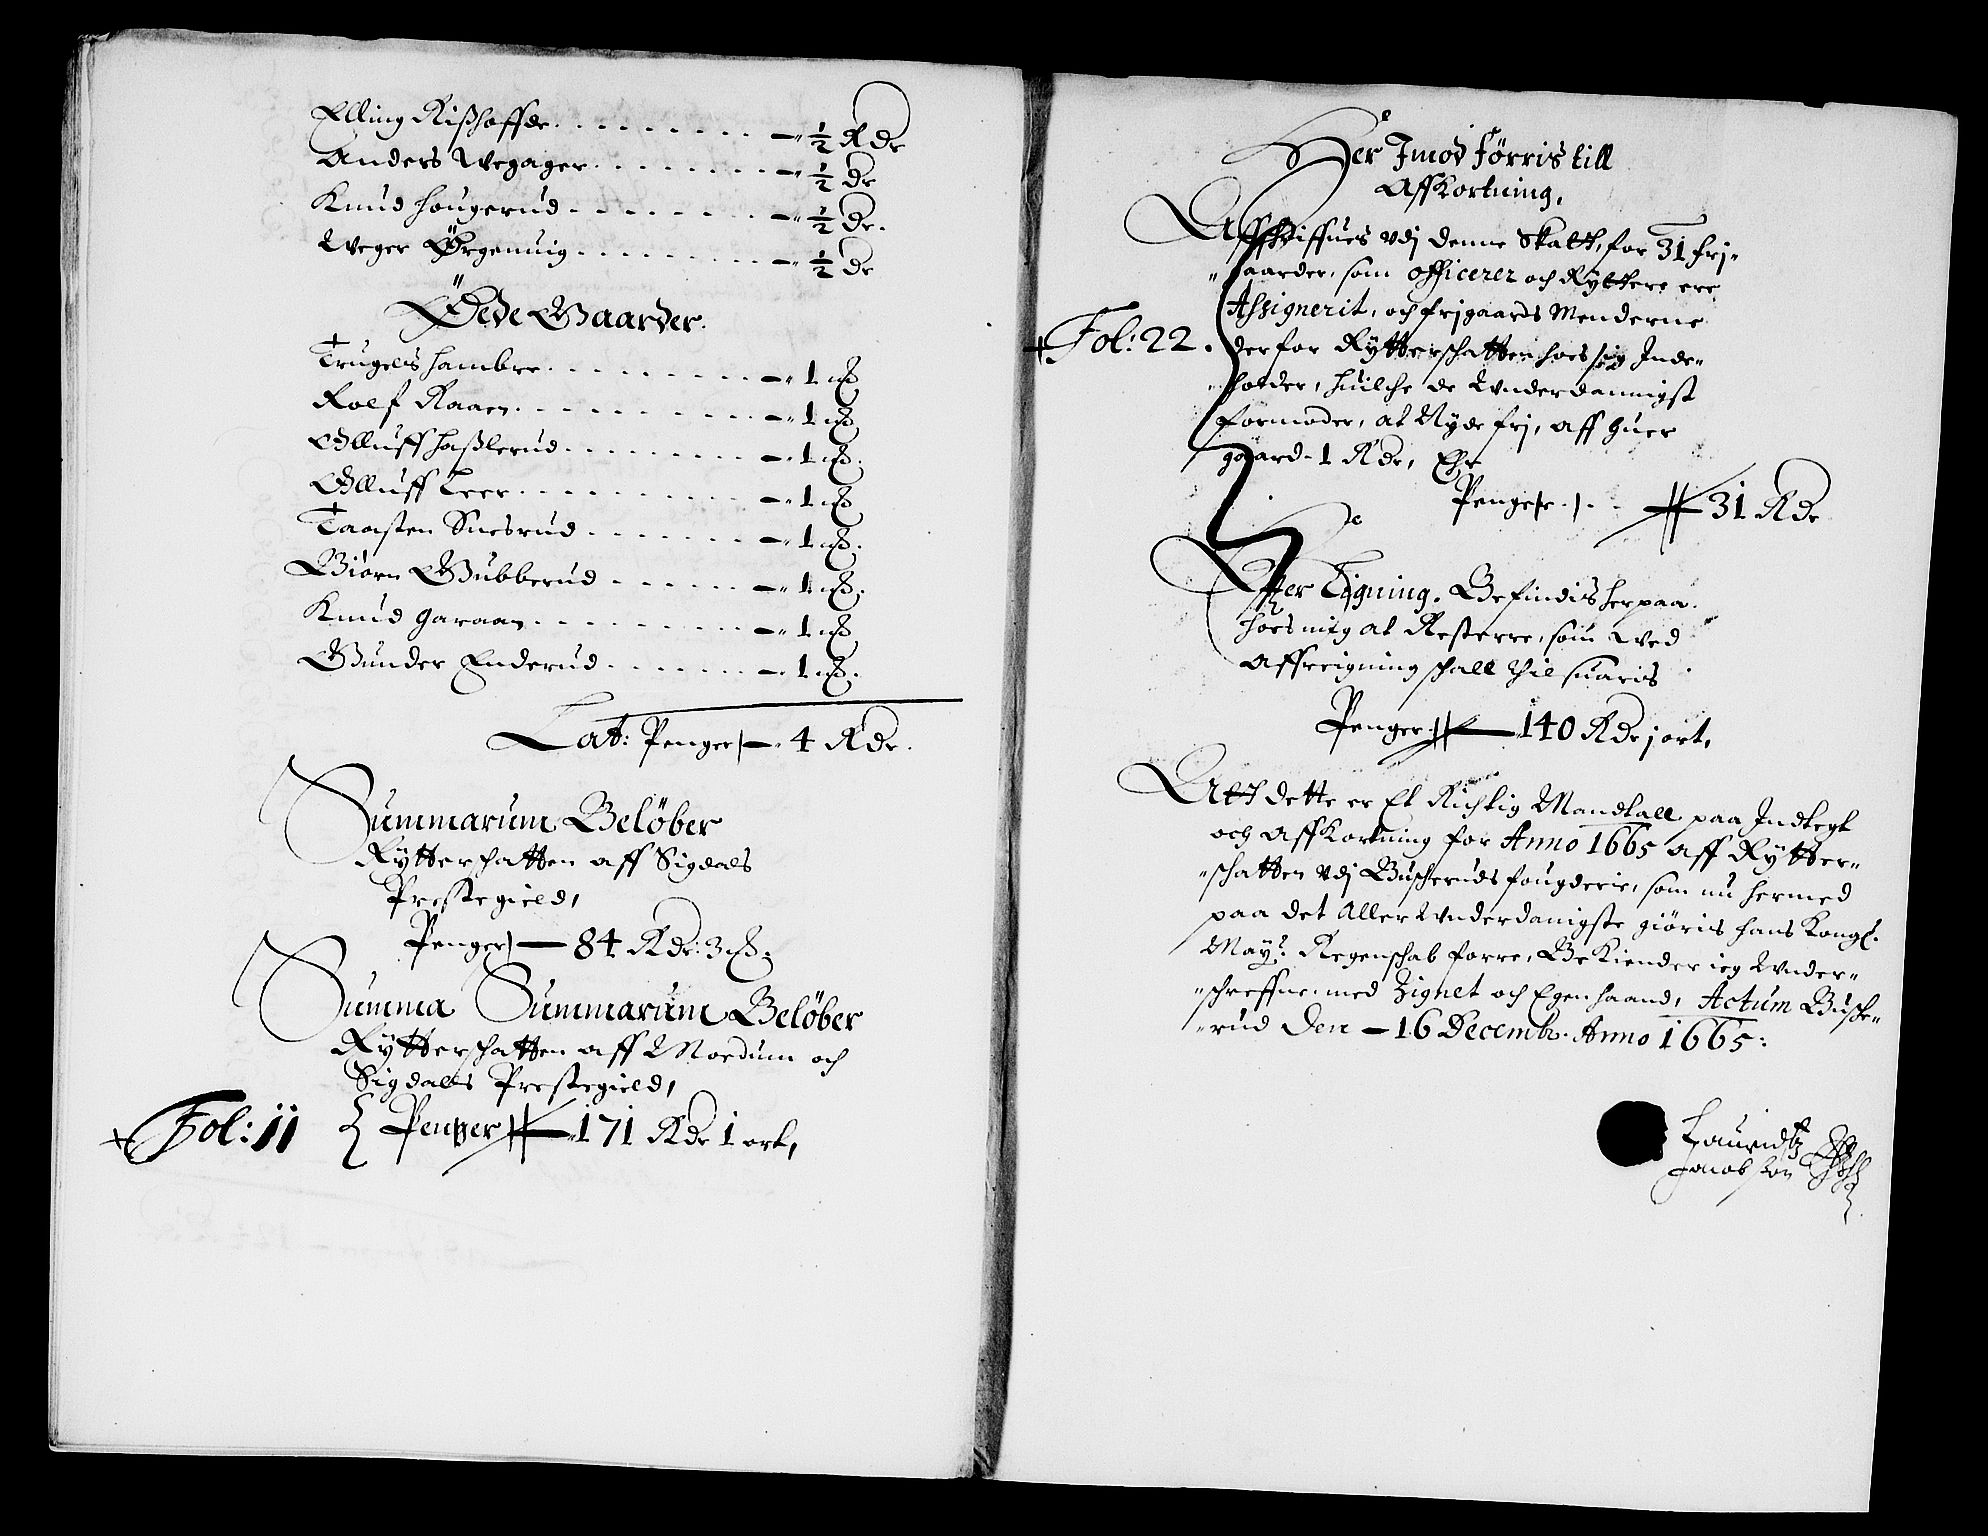 Elling Rishoffde - ½ Rdr
Anders Wegager - ½ dr
Knud Hougerud - ½ dr.
Weger Ørgenuig - ½ dr
Øede Gaarder.
Trugels Hambre - 1 mß
Rolf Raaen - 1 mß
Olluff Haßlerud - 1 mß.
Olluff Leer - 1 mß
Taasten Suesrud - 1 mß.
Biørn Gubberud - 1 mß.
Knud Garaan - 1 mß
Gunder Enderud - 1 mß.
Lat: Penger - 4 Rdr.
Summarum Beløber
Rytterschatten aff Sigdals
Prestegield,
Penger - 84 Rdr: 3 ß.
Summa Summarum Beløber
Rytterschatten aff Moedum och
Sigdalls Prestegield,
Fol: 11 Penger - 171 Rdr 1 ort,
Her Imod føriis till
Affkortning,
Affschriffues vdj denne Skatt, for 31 frj-
gaarder, som officerer och Ryttere ere
Assignerit, och frjgaards Menderne
Fol: 22. derfor Rytterschatten hoes sig Inde-
holder, huilche de Vnderdannigst
formoder, at Nyde frj, aff huer
gaard - 1 Rdr, Ehr
Penge - 31 Rdr
Effter Ligning. Befindis herpaa
hoes mig at Resterre, som wed
affreigning schall thil suaris
Penger - 140 Rdr j ort,
Att dette er Et Richtig Mandtall paa Indtegt
och Affkortning for Anno 1665 aff Rytter-
schatten vdj Buscheruds fougderie, som nu hermed
paa det Aller Vnderdanigste giøris hans Kongl.
Mayt: Regenschab forre, Bekiender ieg Vnder-
schreffne med Zignet och Egen haand, Actum Busche-
rud Den - 16 Decemb. Anno 1665:
Lauridtz
Jacobson